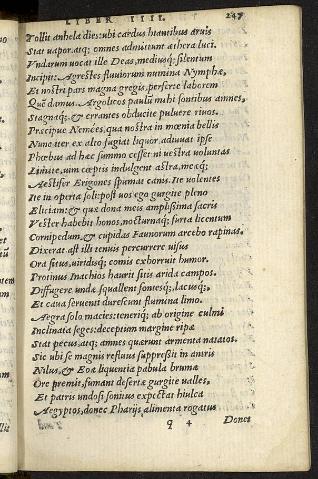 LIBER IIII. 247
Tollit anhela dies: ubi tardus hiantibus aruis
Stat uapor, atq; omnes admittunt æthera luci.
Vndarum uocat ille Deas, mediusq; silentum
Incipit: Agrestes fluuiorum numina Nymphæ,
Et nostri pars magna gregis, perferte laborem
Quē damus. Argolicos paulū mihi fontibus amnes,
Stagnaq; & errantes obducite puluere riuos.
Præcipue Nemees, qua nostra in mœnia bellis
Nunc iter ex alto fugiat liquor, adiuuat ipse
Phœbus ad hæc summo cesset ni uestra uoluntas
Limite, uim cœptis indulgent astra, meæq;
Aestifer Erigones spumat canis. Ite uolentes
Ite in operta soli: post uos ego gurgite pleno
Eliciam: & quæ dona meis amplissima sacris
Vester habebit honos, nocturnaq; furta licentum
Cornipedum, & cupidas Faunorum arcebo rapinas.
Dixerat ast illi tenuis percurrere uisus
Ora situs, uiridisq; comis exhorruit humor.
Protinus Inachios haurit sitis arida campos.
Diffugere undæ squallent fontesq;, lacusq;,
Et caua feruenti durescunt flumina limo.
Aegra solo macies: teneriq; ab origine culmi
Inclinata seges: deceptum margine ripæ
Stat pecus, atq; amnes quærunt armenta natatos.
Sic ubi se magnis refluus suppressit in antris
Nilus, & Eoæ liquentia pabula brumæ
Ore premit, fumant desertæ gurgite ualles,
Et patris undosi sonitus expectat hiulca
Aegyptos, donec Pharijs alimenta rogatus
q 4 Donet